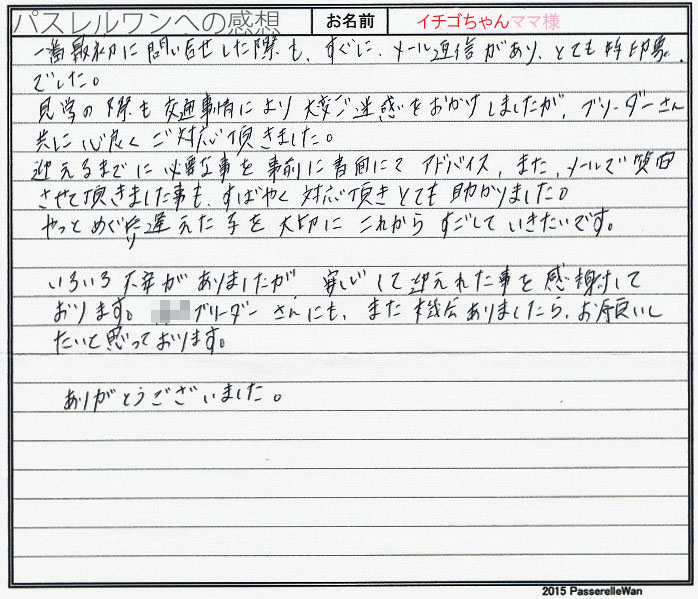 パスレルワンへの感想 お名前 イチゴちゃんママ様
一番最初に問い合せした際も、すぐに、メール返信があり、とても好印象
でした。
見学の際も交通事情により大変ご迷惑をおかけしましたが、ブリーダーさん
共に心良くご対応頂きました。
迎えるまでに必要な事を事前に書面にてアドバイス、また、メールで質問
させて頂きました事も、すばやく対応頂きとても助かりました。
やっとめぐり逢えた子を大切にこれからすごしていきたいです。
いろいろ不安がありましたが安心して迎えれた事を感謝して
おります。ブリーダーさんにも、また機会ありましたら、お願いし
たいと思っております。
ありがとうございました。
2015 PasserelleWan